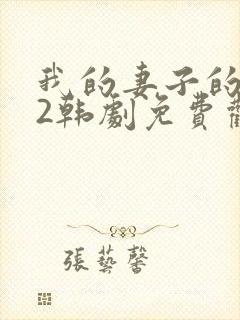 我的妻子的
2韩劇免費
張藝馨